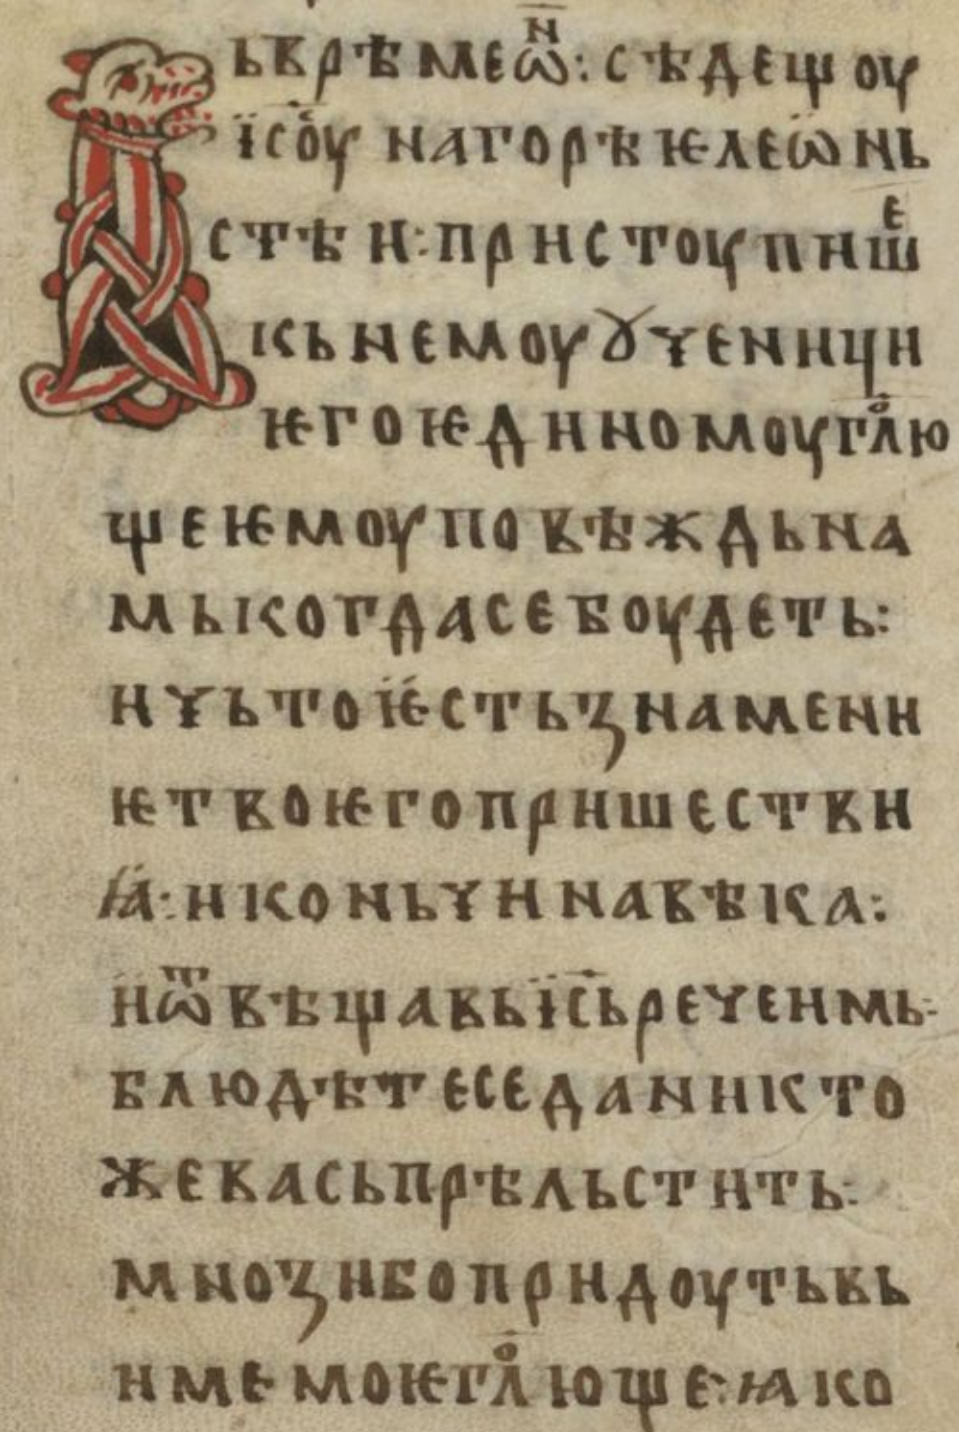 Вьврѣмеѡ҃н:сѣдещоу
їсоу҃ нагорѣѥлеѡнь
стѣи:пристоупише
кьнемоуꙋченици
ѥгоѥдиномоугл҃ю
щеѥмоуповѣждьна
мькогдасебоудеть:
ичьтоѥстьꙁнамени
ѥтвоѥгопришестви
ꙗ:иконьчинавѣка:
иѿвѣщавьїс҃ьреченмь:
блюдѣтеседаникто
жевасьпрѣльстить:
мноꙁибопридоутьвь
имемоѥгл҃юще:ꙗко